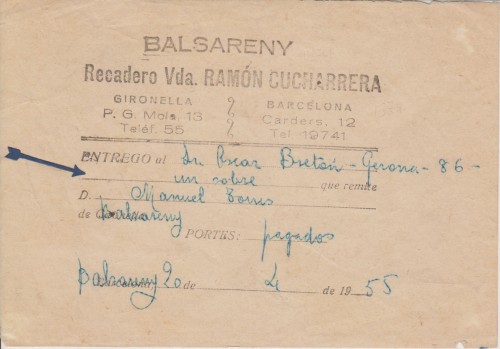 BALSARENY
Recadero Vda. RAMÓN CUCHARRERA
GIRONELLA
P. G. Mola, 13
Teléf. 55
BARCELONA
Carders, 12
Tel. 19741
ENTREGO al Sr. Oscar Bretón - Gerona - 86 -
un sobre que remite
D. Manuel Torres
de Balsareny
PORTES: pagados
Balsareny 20 de 4 de 1955